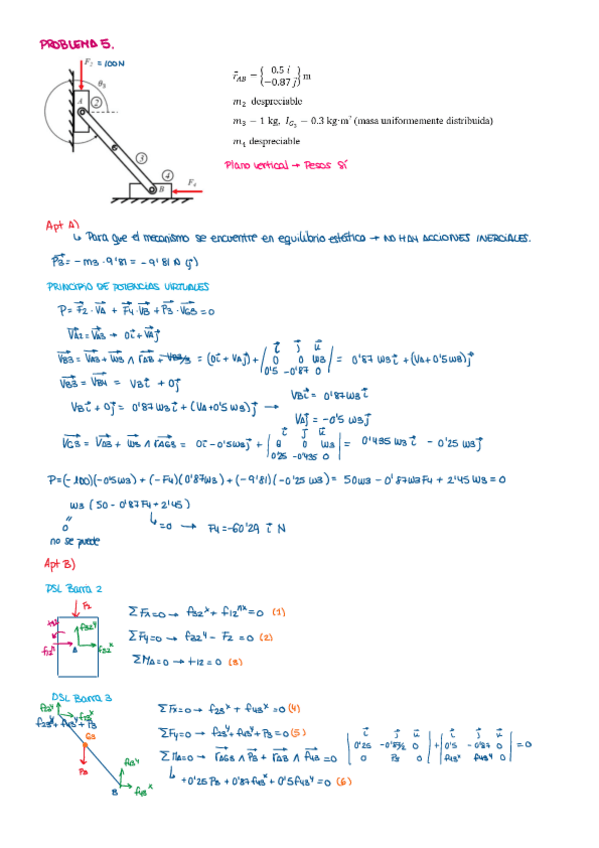 PROBLEMA 5.
F₂ = 100N
θ₃
A
2
3
4
B
F₄
r⃗_AB = { 0.5 i
−0.87 j } m
m₂ despreciable
m₃ = 1 kg, I_G₃ = 0.3 kg·m² (masa uniformemente distribuida)
m₄ despreciable
Plano vertical → Pesos sí
Apt A)
↳ Para que el mecanismo se encuentre en equilibrio estático → NO HAY ACCIONES INERCIALES.
P₃ = −m₃·9'81 = −9'81 N (j)
PRINCIPIO DE POTENCIAS VIRTUALES
P = F₂·VA + F₄·VB + P₃·VG3 = 0
VA2 = VA3 → 0i + VAj
VB3 = VA3 + ω3 ∧ rAB + = (0i + VAj) + | i j u | 0 0 ω3 | 0'5 −0'87 0 | = 0'87 ω3 i + (VA + 0'5 ω3) j
VB3 = VB4 = VB i + 0j
VB i + 0j = 0'87 ω3 i + (VA + 0'5 ω3) j → VB i = 0'87 ω3 i
VA j = −0'5 ω3 j
VG3 = VA3 + ω3 ∧ rAG3 = 0i − 0'5ω3 j + | i j u | 0 0 ω3 | 0'25 −0'435 0 | = 0'435 ω3 i − 0'25 ω3 j
P = (−100)(−0'5ω3) + (−F4)(0'87ω3) + (−9'81)(−0'25 ω3) = 50ω3 − 0'87ω3F4 + 2'45 ω3 = 0
ω3 (50 − 0'87F4 + 2'45)
0
no se puede
↳ = 0 → F4 = −60'29 i N
Apt B)
DSL Barra 2
F₂
t12
f32ʸ
f12ⁿˣ
A
f32ˣ
ΣFx = 0 → f32ˣ + f12ⁿˣ = 0 (1)
ΣFy = 0 → f32ʸ − F2 = 0 (2)
ΣMA = 0 → t12 = 0 (3)
DSL Barra 3
f23ʸ
f23ˣ
f23ʸ + f43ʸ + P3
G3
P3
f43ʸ
B
f43ˣ
ΣFx = 0 → f23ˣ + f43ˣ = 0 (4)
ΣFy = 0 → f23ʸ + f43ʸ + P3 = 0 (5)
ΣMA = 0 → rAG3 ∧ P3 + rAB ∧ f43 = 0
| i j u | 0'25 −0'87/2 0 | 0 P3 0 | + | i j u | 0'5 −0'87 0 | f43ˣ f43ʸ 0 | = 0
↳ +0'25 P3 + 0'87f43ˣ + 0'5f43ʸ = 0 (6)